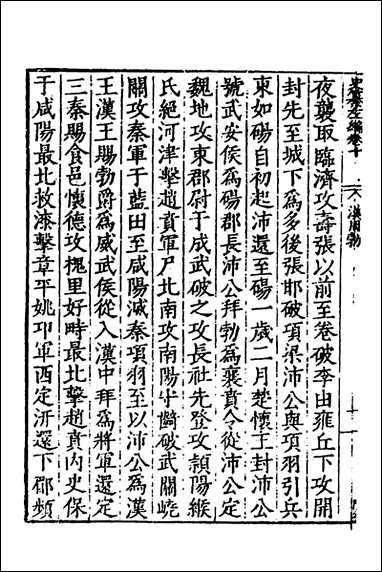 史纂左編卷十
漢周勃
夜襲取臨濟攻壽張以前至卷破李由雍丘下攻開
封先至城下爲多後張邯破項梁沛公與項羽引兵
東如碭自初起沛還至碭一歲二月楚懷王封沛公
號武安侯爲碭郡長沛公拜勃爲襄賁令從沛公定
魏地攻東郡尉于成武破之攻長社先登攻潁陽緱
氏絕河津擊趙賁軍尸北南攻南陽守齮破武關嶢
關攻秦軍于藍田至咸陽滅秦項羽至以沛公爲漢
王漢王賜勃爵爲威武侯從入漢中拜爲將軍還定
三秦賜食邑懷德攻槐里好畤最北擊趙賁內史保
于咸陽最北救漆擊章平姚卬軍西定汧還下郿頻